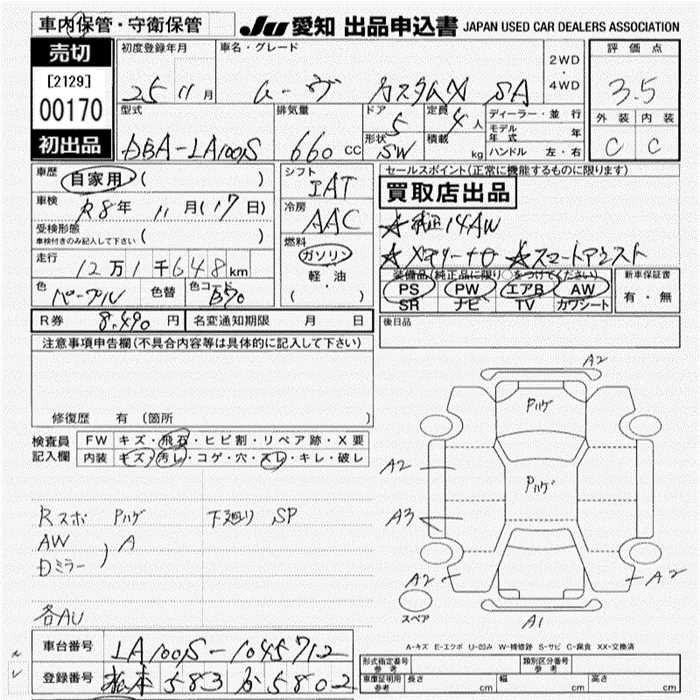 車内保管・守衛保管
JU 愛知 出品申込書 JAPAN USED CAR DEALERS ASSOCIATION
売切
[2129]
00170
初出品
初度登録年月
25 11 月
車名・グレード
ムーヴ カスタムX SA
2WD
・
4WD
評価点
3.5
外装 内装
C C
型式
DBA-LA100S
排気量
660 cc
ドア
5
形状
SW
定員
4 人
積載
kg
ディーラー・並行
モデル年式 年
ハンドル 左・右
車歴
自家用 ( )
車検
R8年 11月(17日)
受検形態
車検付きのみ記入して下さい ( )
走行
12万1千648km
色
パープル
色替
色コード
B70
シフト
IAT
冷房
AAC
燃料
ガソリン
軽・油
( )
セールスポイント(正常に機能するものに限ります)
買取店出品
☆純正14AW
☆メモリーナビ ☆スマートアシスト
装備品(純正品に限り○をつけてください)
PS PW エアB AW
SR ナビ TV カワシート
新車保証書
有・無
R券 8,490 円 名変通知期限 月 日
後日品
注意事項申告欄(不具合内容等は具体的に記入して下さい)
修復歴 有 (箇所 )
検査員
記入欄
FW キズ・飛石・ヒビ割・リペア跡・X要
内装 キズ・汚レ・コゲ・穴・スレ・キレ・破レ
Rスポ Pハゲ 下廻り SP
AW
Dミラー ) A
各AU
A2
Pハゲ
A2
Pハゲ
A3
A2
A2
スペア
A1
A-キズ E-エクボ U-凹み W-補修跡 S-サビ C-腐食 XX-交換済
車台番号 LA100S-1045712
登録番号 583 5802
形式指定番号
参考
類別区分番号
参考
車庫証明用
参考
長さ cm 幅 cm 高さ cm